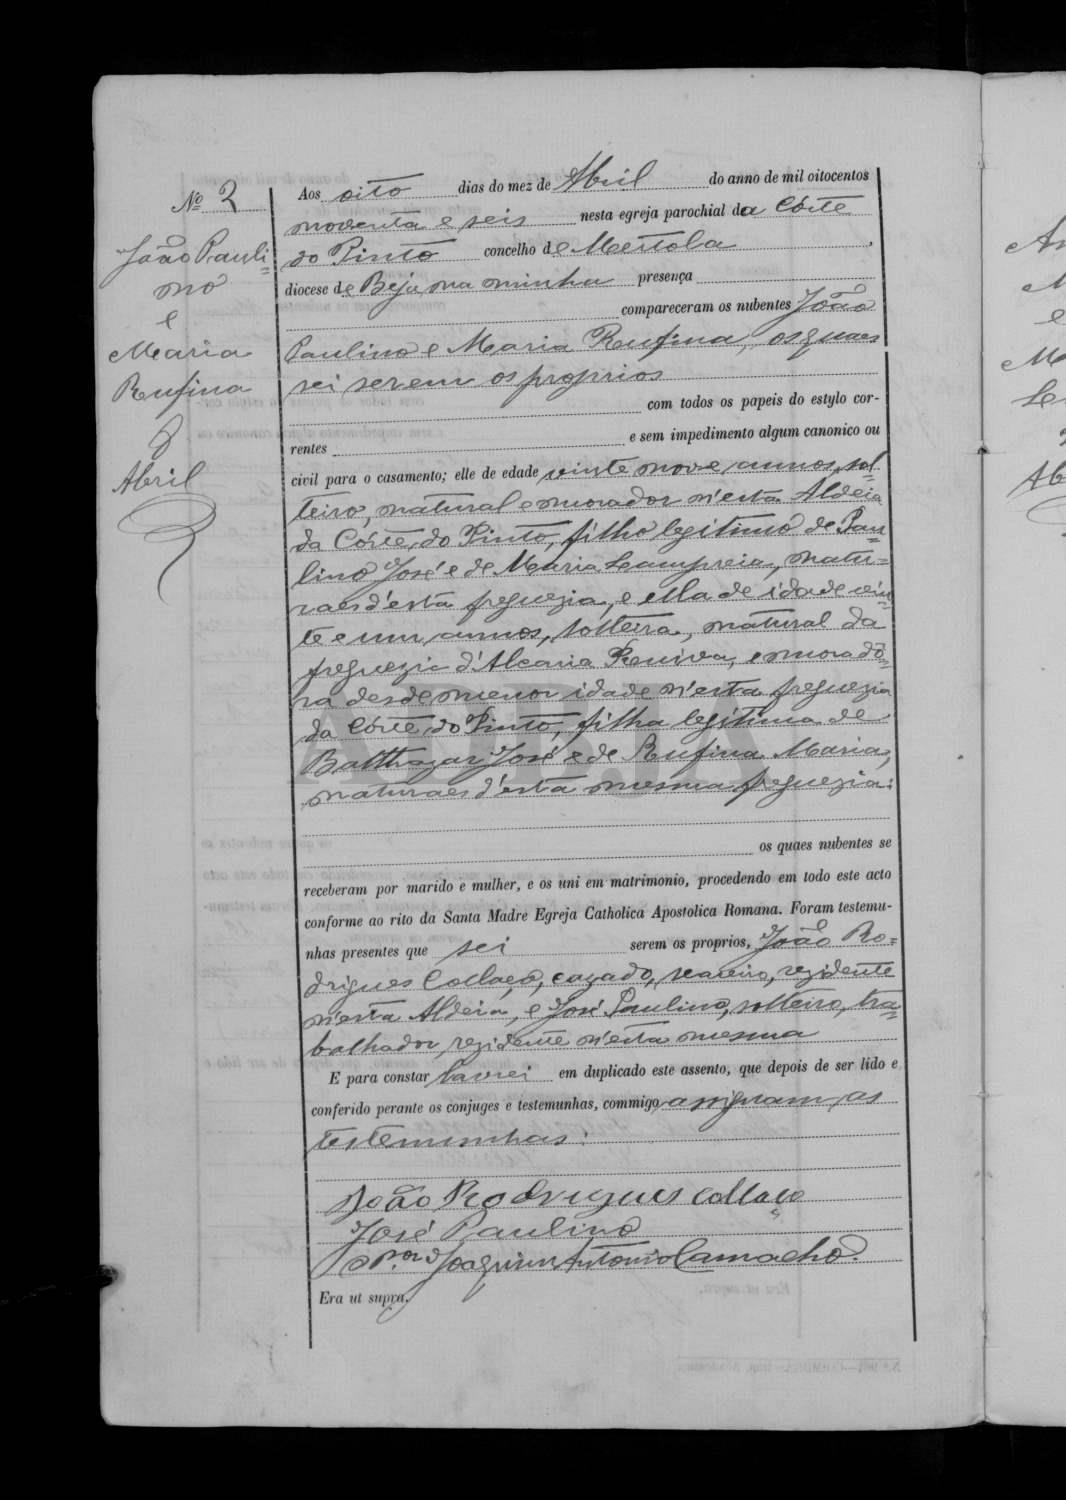 Nº 2
João Pauli=
no
e
Maria
Rufina
8
Abril
Aos oito dias do mez de Abril do anno de mil oitocentos
noventa e seis nesta egreja parochial da Côrte
do Pinto concelho de Mertola,
diocese de Beja, na minha presença
compareceram os nubentes João
Paulino e Maria Rufina, os quaes
sei serem os proprios
com todos os papeis do estylo cor-
rentes e sem impedimento algum canonico ou
civil para o casamento; elle de edade vinte nove annos, sol=
teiro, natural e morador n'esta Aldeia
da Côrte do Pinto, filho legitimo de Pau=
lino José e de Maria Lampreia, natu=
raes d'esta freguezia, e ella de idade vin=
te e um annos, solteira, natural da
freguezia d'Alcaria Ruiva, e morado=
ra desde menor idade n'esta freguezia
da Côrte do Pinto, filha legitima de
Balthazar José e de Rufina Maria,
naturaes d'esta mesma freguezia:
os quaes nubentes se
receberam por marido e mulher, e os uni em matrimonio, procedendo em todo este acto
conforme ao rito da Santa Madre Egreja Catholica Apostolica Romana. Foram testemu-
nhas presentes que sei serem os proprios, João Ro=
drigues Collaço, cazado, seareiro, rezidente
n'esta Aldeia, e José Paulino, solteiro, tra=
balhador, rezidente n'esta mesma
E para constar lavrei em duplicado este assento, que depois de ser lido e
conferido perante os conjuges e testemunhas, commigo assignam, as
testemunhas:
João Rodrigues Collaço
José Paulino
O P.or Joaquim Antonio Camacho.
Era ut supra.